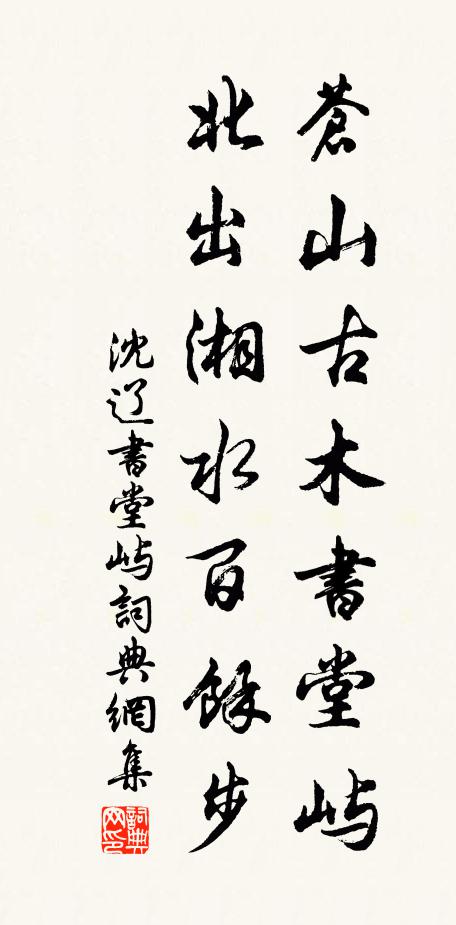 蒼山古木書堂嶼
北出湘水百餘步
沈辽書堂嶼詞典網集
詞典网印